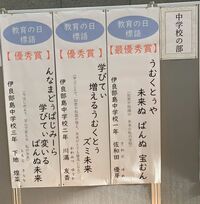 中学校の部
教育の日
標語
【最優秀賞】
うむくとぅや
未来ぬ ばんぬ 宝むん
伊良部島中学校一年 佐和田 優芽
教育の日
標語
【優秀賞】
学びてぃ
増えるうむくとぅ
ズミ未来
伊良部島中学校二年 川満 友香
教育の日
標語
【優秀賞】
んなまどぅぱじみら
学びてぃ変いる
ばんぬ未来
伊良部島中学校三年 下地 煌菜